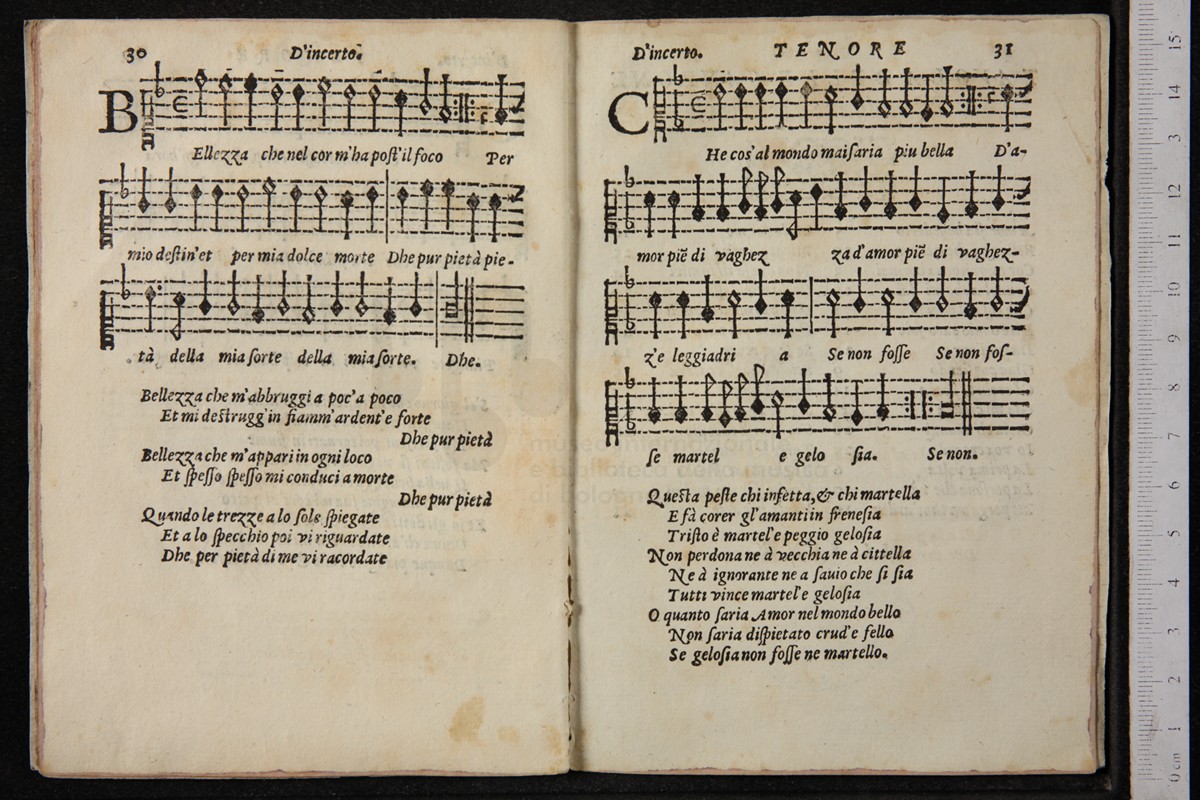 30 D'incerto.
B
Ellezza che nel cor m'ha post'il foco Per
mio destin'et per mia dolce morte Dhe pur pietà pie-
tà della mia sorte della mia sorte. Dhe.
Bellezza che m'abbruggi a poc'a poco
Et mi destrugg'in fiamm'ardent'e forte
Dhe pur pietà
Bellezza che m'appari in ogni loco
Et spesso spesso mi conduci a morte
Dhe pur pietà
Quando le trezze a lo sole spiegate
Et a lo specchio poi vi riguardate
Dhe per pietà di me vi racordate
D'incerto. TENORE 31
C
He cos'al mondo mai saria piu bella D'a-
mor piē di vaghez za d'amor piē di vaghez-
z'e leggiadri a Se non fosse Se non fos-
se martel e gelo sia. Se non.
Questa peste chi infetta, & chi martella
E fà corer gl'amanti in frenesia
Tristo è martel'e peggio gelosia
Non perdona ne à vecchia ne à cittella
Ne à ignorante ne a sauio che si sia
Tutti vince martel'e gelosia
O quanto saria Amor nel mondo bello
Non saria dispietato crud'e fello
Se gelosia non fosse ne martello.
museo internazionale
e biblioteca della musica
di bologna
0 cm 1 2 3 4 5 6 7 8 9 10 11 12 13 14 15